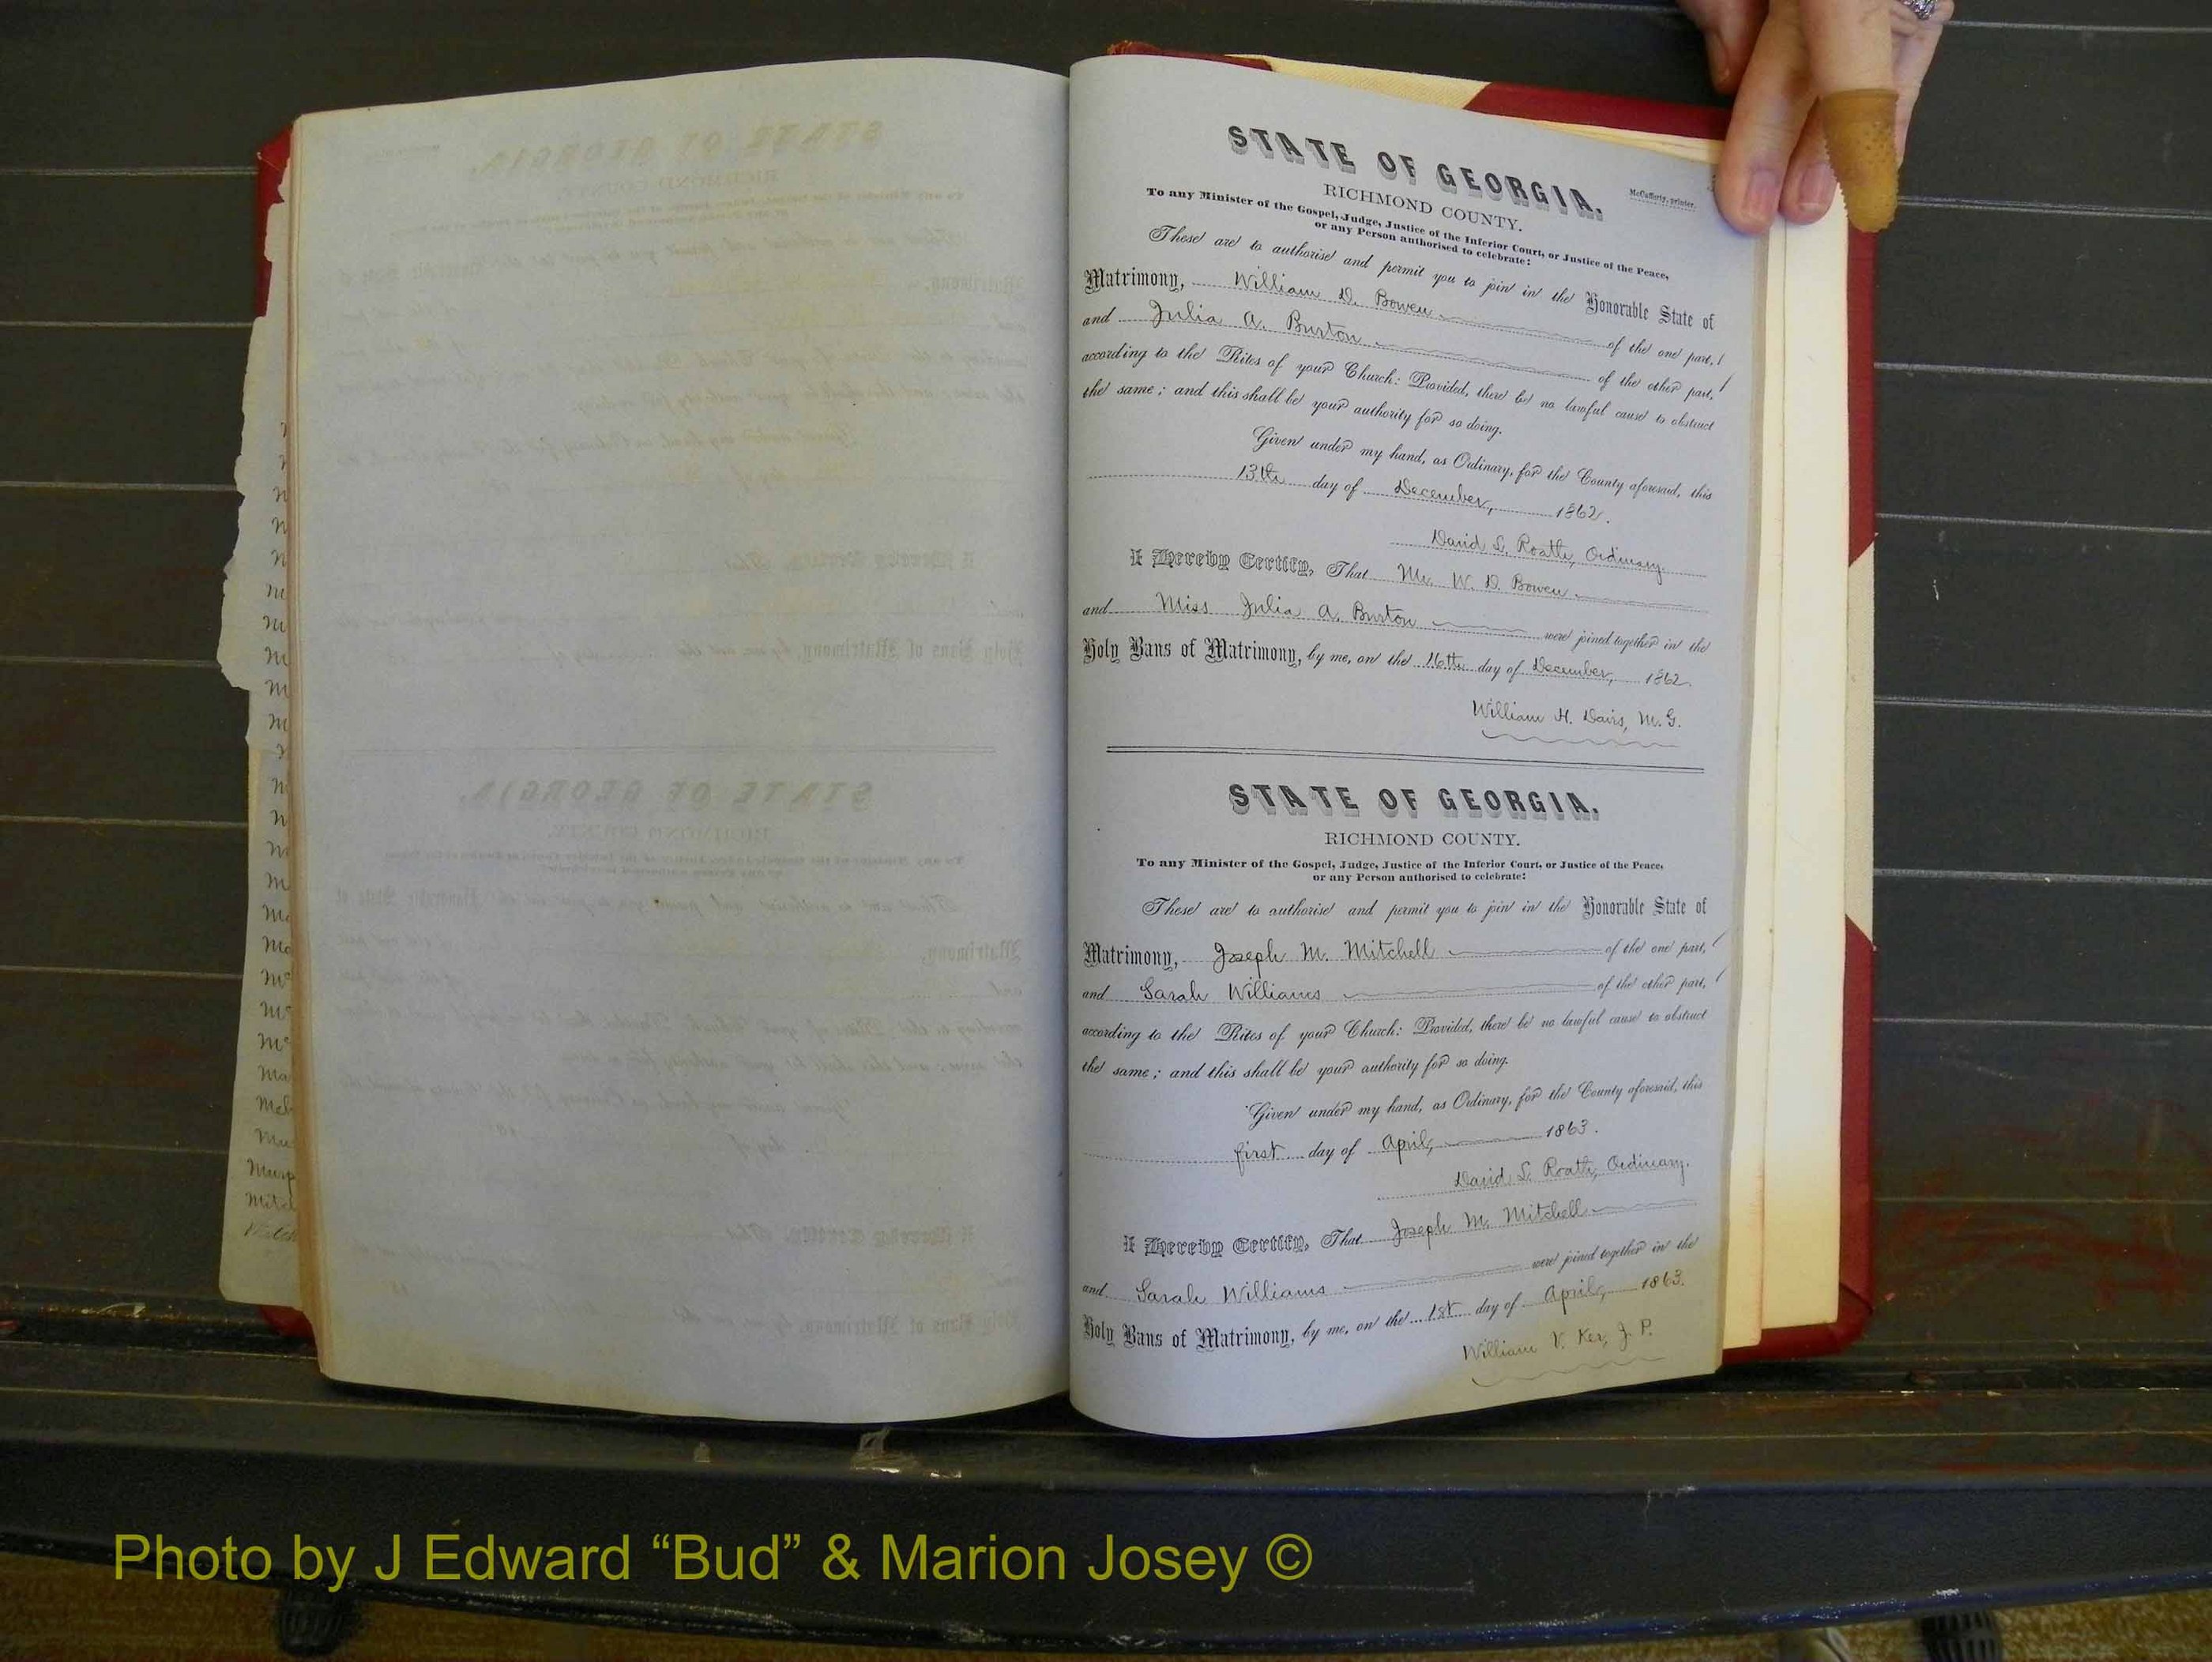 STATE OF GEORGIA.
McCafferty, printer.
RICHMOND COUNTY.
To any Minister of the Gospel, Judge, Justice of the Inferior Court, or Justice of the Peace,
or any Person authorised to celebrate:
These are to authorise and permit you to join in the Honorable State of
Matrimony, William D. Bowen of the one part,
and Julia A. Burton of the other part,
according to the Rites of your Church: Provided, there be no lawful cause to obstruct
the same; and this shall be your authority for so doing.
Given under my hand, as Ordinary, for the County aforesaid, this
13th day of December, 1862.
David L. Roath, Ordinary.
I Hereby Certify, That Mr. W. D. Bowen
and Miss Julia A. Burton were joined together in the
Holy Bans of Matrimony, by me, on the 16th day of December, 1862.
William H. Davis, M. G.
STATE OF GEORGIA.
RICHMOND COUNTY.
To any Minister of the Gospel, Judge, Justice of the Inferior Court, or Justice of the Peace,
or any Person authorised to celebrate:
These are to authorise and permit you to join in the Honorable State of
Matrimony, Joseph M. Mitchell of the one part,
and Sarah Williams of the other part,
according to the Rites of your Church: Provided, there be no lawful cause to obstruct
the same; and this shall be your authority for so doing.
Given under my hand, as Ordinary, for the County aforesaid, this
first day of April, 1863.
David L. Roath, Ordinary.
I Hereby Certify, That Joseph M. Mitchell
and Sarah Williams were joined together in the
Holy Bans of Matrimony, by me, on the 1st day of April, 1863.
William V. Ker, J. P.
Photo by J Edward “Bud” & Marion Josey ©